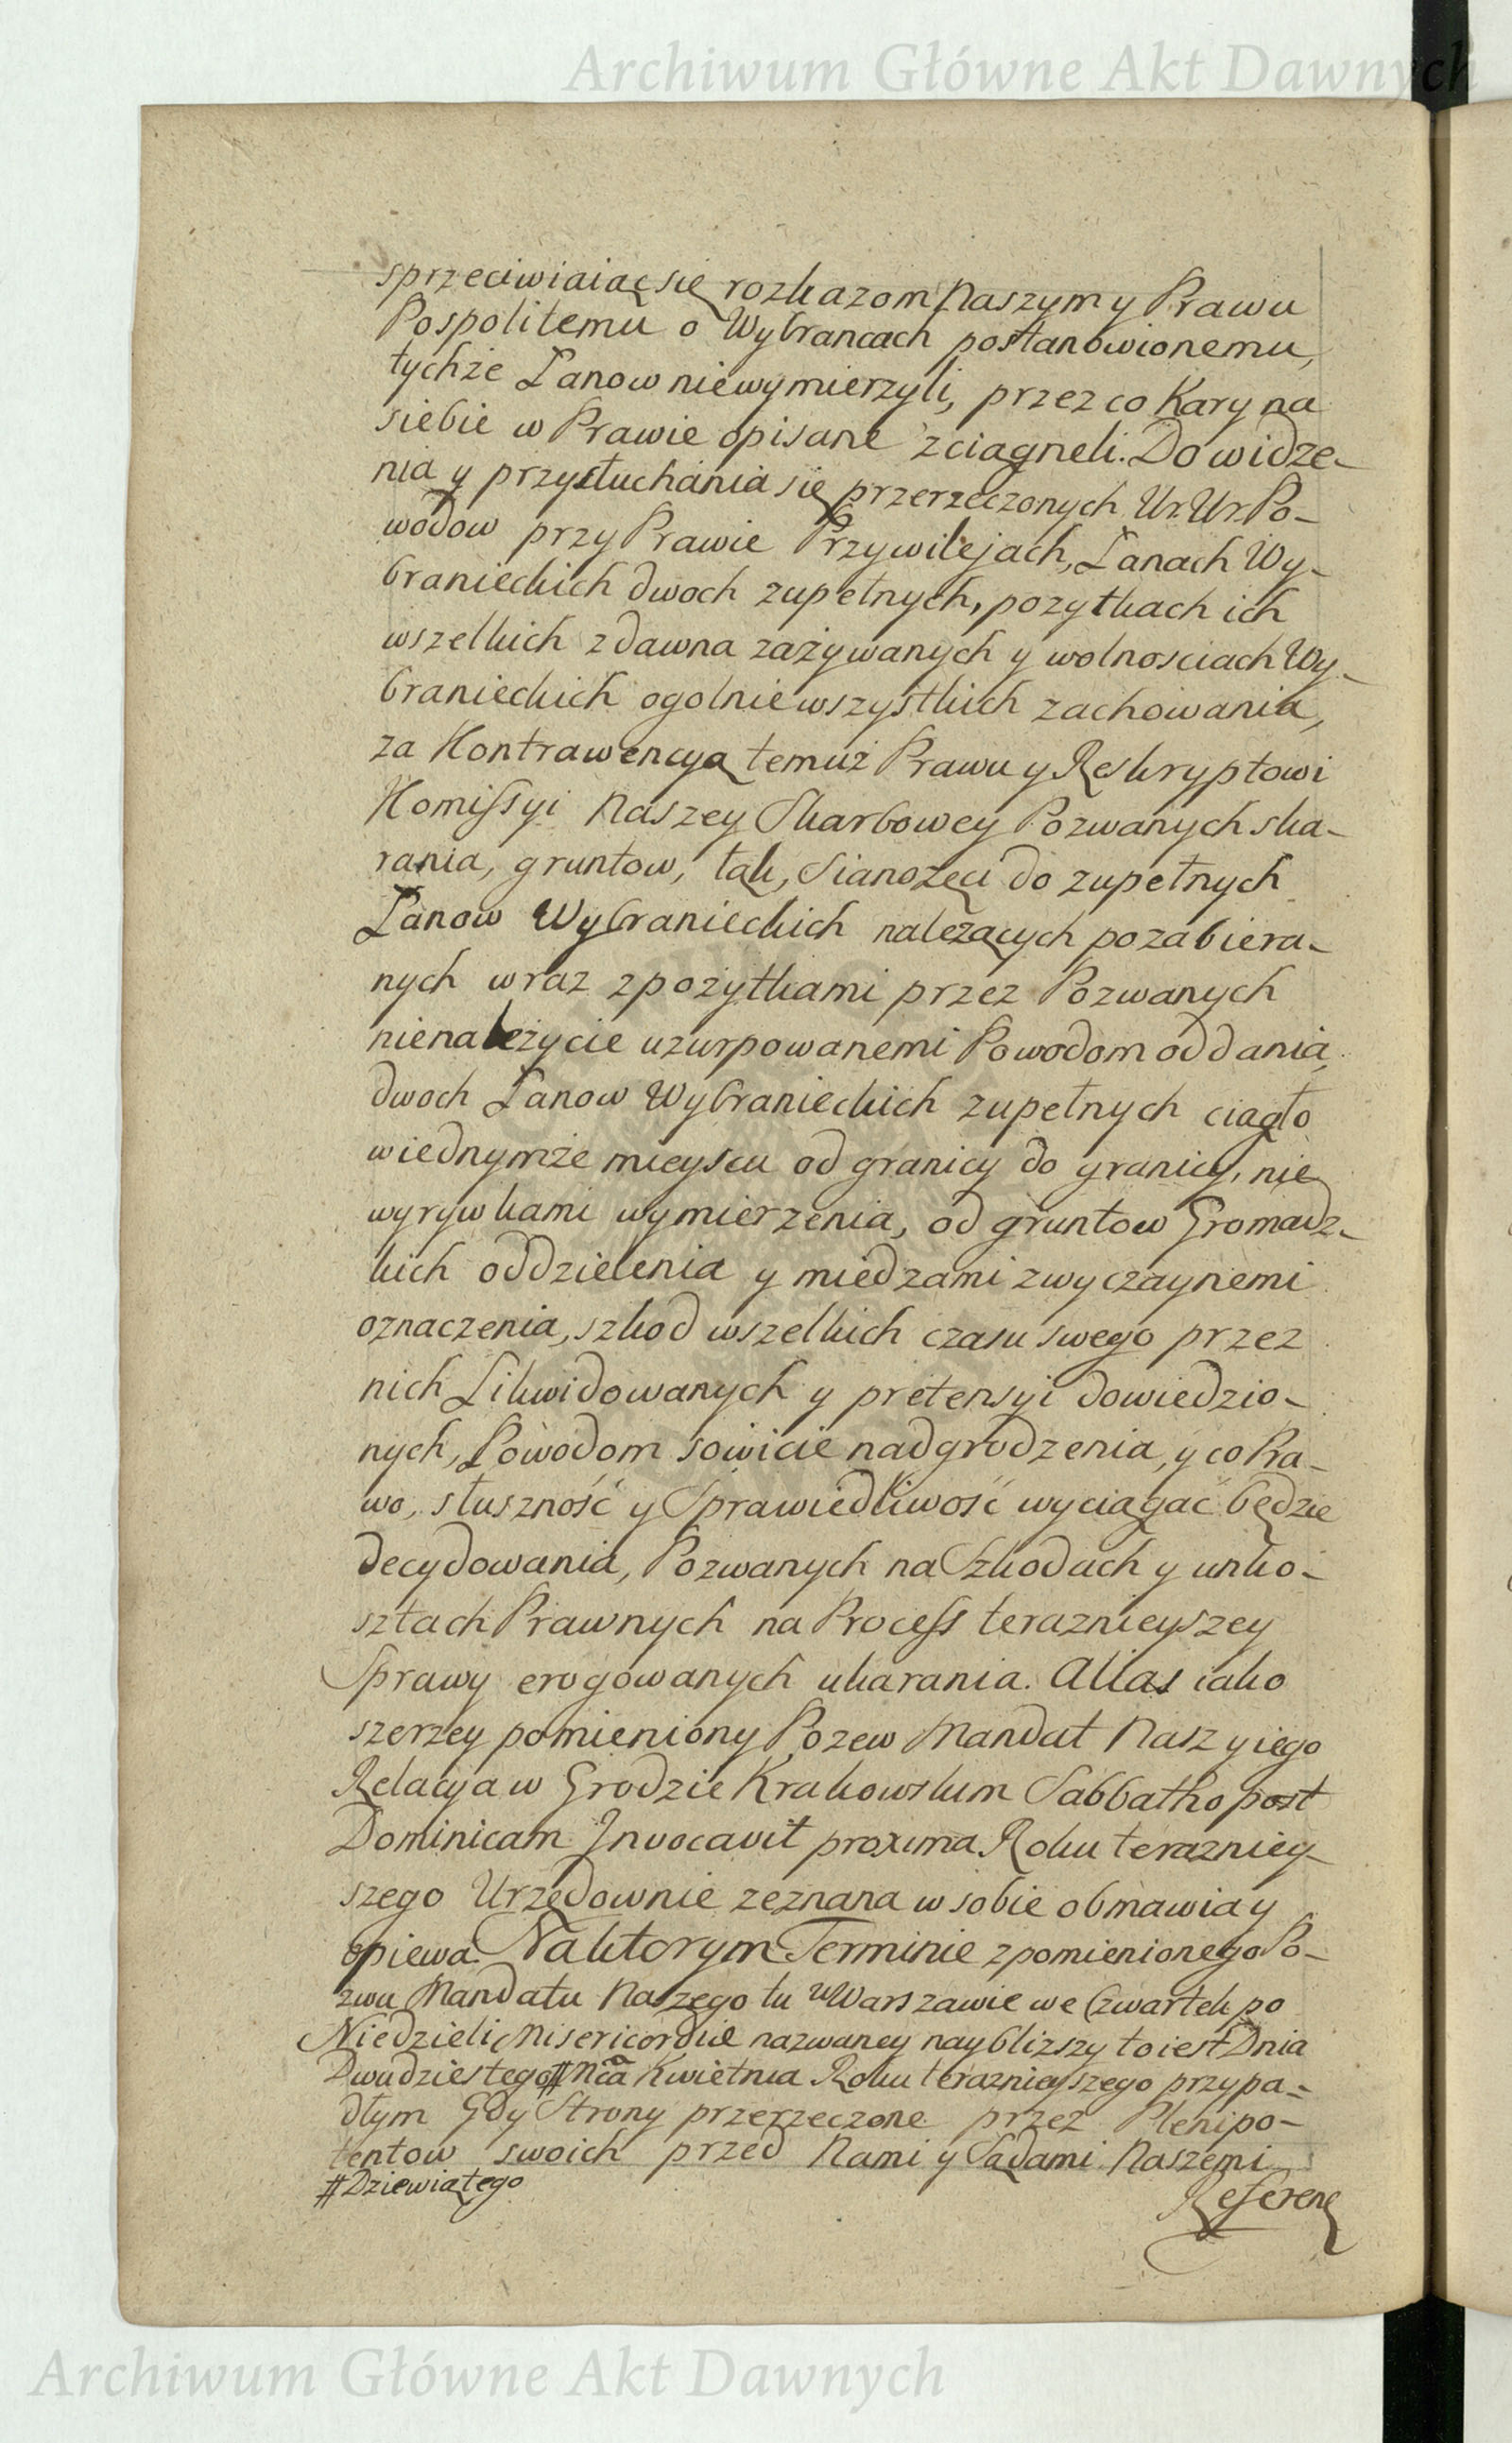 Archiwum Główne Akt Dawnych
sprzeciwiaiąc się rozkazom Naszym y Prawu
Pospolitemu o Wybrancach postanowionemu,
tychże Łanow niewymierzyli, przez co Kary na
siebie w Prawie opisane zciągneli. Do widze-
nia y przysłuchania się przerzeczonych Ur. Ur. Po-
wodow przy Prawie Przywilejach, Łanach Wy-
branieckich dwoch zupełnych, pozytkach ich
wszelkich zdawna zażywanych y wolnosciach Wy-
branieckich ogolnie wszystkich zachowania,
za Kontrawencyą temuż Prawu y Reskryptowi
Komissyi Naszey Skarbowey Pozwanych ska-
rania, gruntow, łąk, Sianożęci do zupełnych
Łanow Wybranieckich należących pozabiera-
nych wraz z pożytkami przez Pozwanych
nienależycie uzurpowanemi Powodom oddania,
dwoch Łanow Wybranieckich zupełnych ciągło
wiednymże mieyscu od granicy do granicy, nie
wyrywkami wymierzenia, od gruntow Gromadz-
kich oddzielenia y miedzami zwyczaynemi
oznaczenia, szkod wszelkich czasu swego przez
nich Likwidowanych y pretensyi dowiedzio-
nych, Powodom sowicie nadgrodzenia, y co Pra-
wo, słuszność y Sprawiedliwość wyciągać będzie
decydowania, Pozwanych na Szkodach y unko-
sztach Prawnych na Process teraznieyszey
Sprawy erogowanych ukarania. Alias iako
szerzey pomieniony Pozew Mandat Nasz y iego
Relacya w Grodzie Krakowskim Sabbatho post
Dominicam Invocavit proxima Roku terazniey-
szego Urzędownie zeznana w sobie obmawia y
opiewa. Na ktorym Terminie z pomienionego Po-
zwu Mandatu Naszego tu w Warszawie we Czwartek po
Niedzieli Misericordie nazwaney nayblizszy to iest Dnia
Dwudziestego # Mca Kwietnia Roku teraznieyszego przypa-
dłym Gdy Strony przerzeczone przez Plenipo-
tentow swoich przed Nami y Sądami Naszemi
# Dziewiątego
Referenꝫ
Archiwum Główne Akt Dawnych